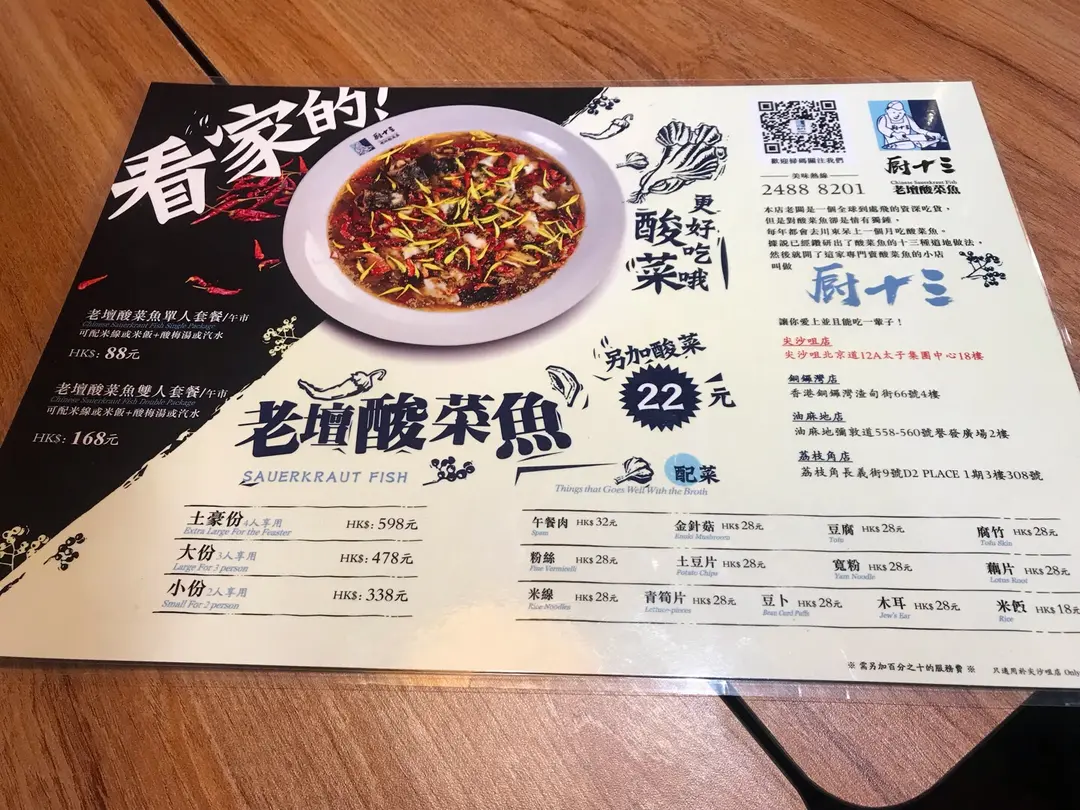 看家的！
廚十三
老壇酸菜魚單人套餐/午市
Chinese Sauerkraut Fish Single Package
可配米線或米飯+酸梅湯或汽水
HK$: 88元
老壇酸菜魚雙人套餐/午市
Chinese Sauerkraut Fish Double Package
可配米線或米飯+酸梅湯或汽水
HK$: 168元
酸菜
更好吃哦
另加酸菜
22元
老壇酸菜魚
SAUERKRAUT FISH
土豪份 4人享用 HK$: 598元
Extra Large For the Feaster
大份 3人享用 HK$: 478元
Large For 3 person
小份 2人享用 HK$: 338元
Small For 2 person
歡迎掃碼關注我們
美味熱線
2488 8201
廚十三
Chinese Sauerkraut Fish
老壇酸菜魚
本店老闆是一個全球到處飛的資深吃貨，
但是對酸菜魚卻是情有獨鍾，
每年都會去川東呆上一個月吃酸菜魚。
據說已經鑽研出了酸菜魚的十三種道地做法，
然後就開了這家專門賣酸菜魚的小店
叫做
廚十三
讓你愛上並且能吃一輩子！
尖沙咀店
尖沙咀北京道12A太子集團中心18樓
銅鑼灣店
香港銅鑼灣渣甸街66號4樓
油麻地店
油麻地彌敦道558-560號譽發廣場2樓
荔枝角店
荔枝角長義街9號D2 PLACE 1期3樓308號
配菜
Things that Goes Well With the Broth
午餐肉 HK$ 32元 金針菇 HK$ 28元 豆腐 HK$ 28元 腐竹 HK$ 28元
Spam Enoki Mushroom Tofu Tofu Skin
粉絲 HK$ 28元 土豆片 HK$ 28元 寬粉 HK$ 28元 藕片 HK$ 28元
Fine Vermicelli Potato Chips Yam Noodle Lotus Root
米線 HK$ 28元 青筍片 HK$ 28元 豆卜 HK$ 28元 木耳 HK$ 28元 米飯 HK$ 18元
Rice Noodles Lettuce-pieces Bean Curd Puffs Jew's Ear Rice
※ 需另加百分之十的服務費 ※ 只適用於尖沙咀店 Only